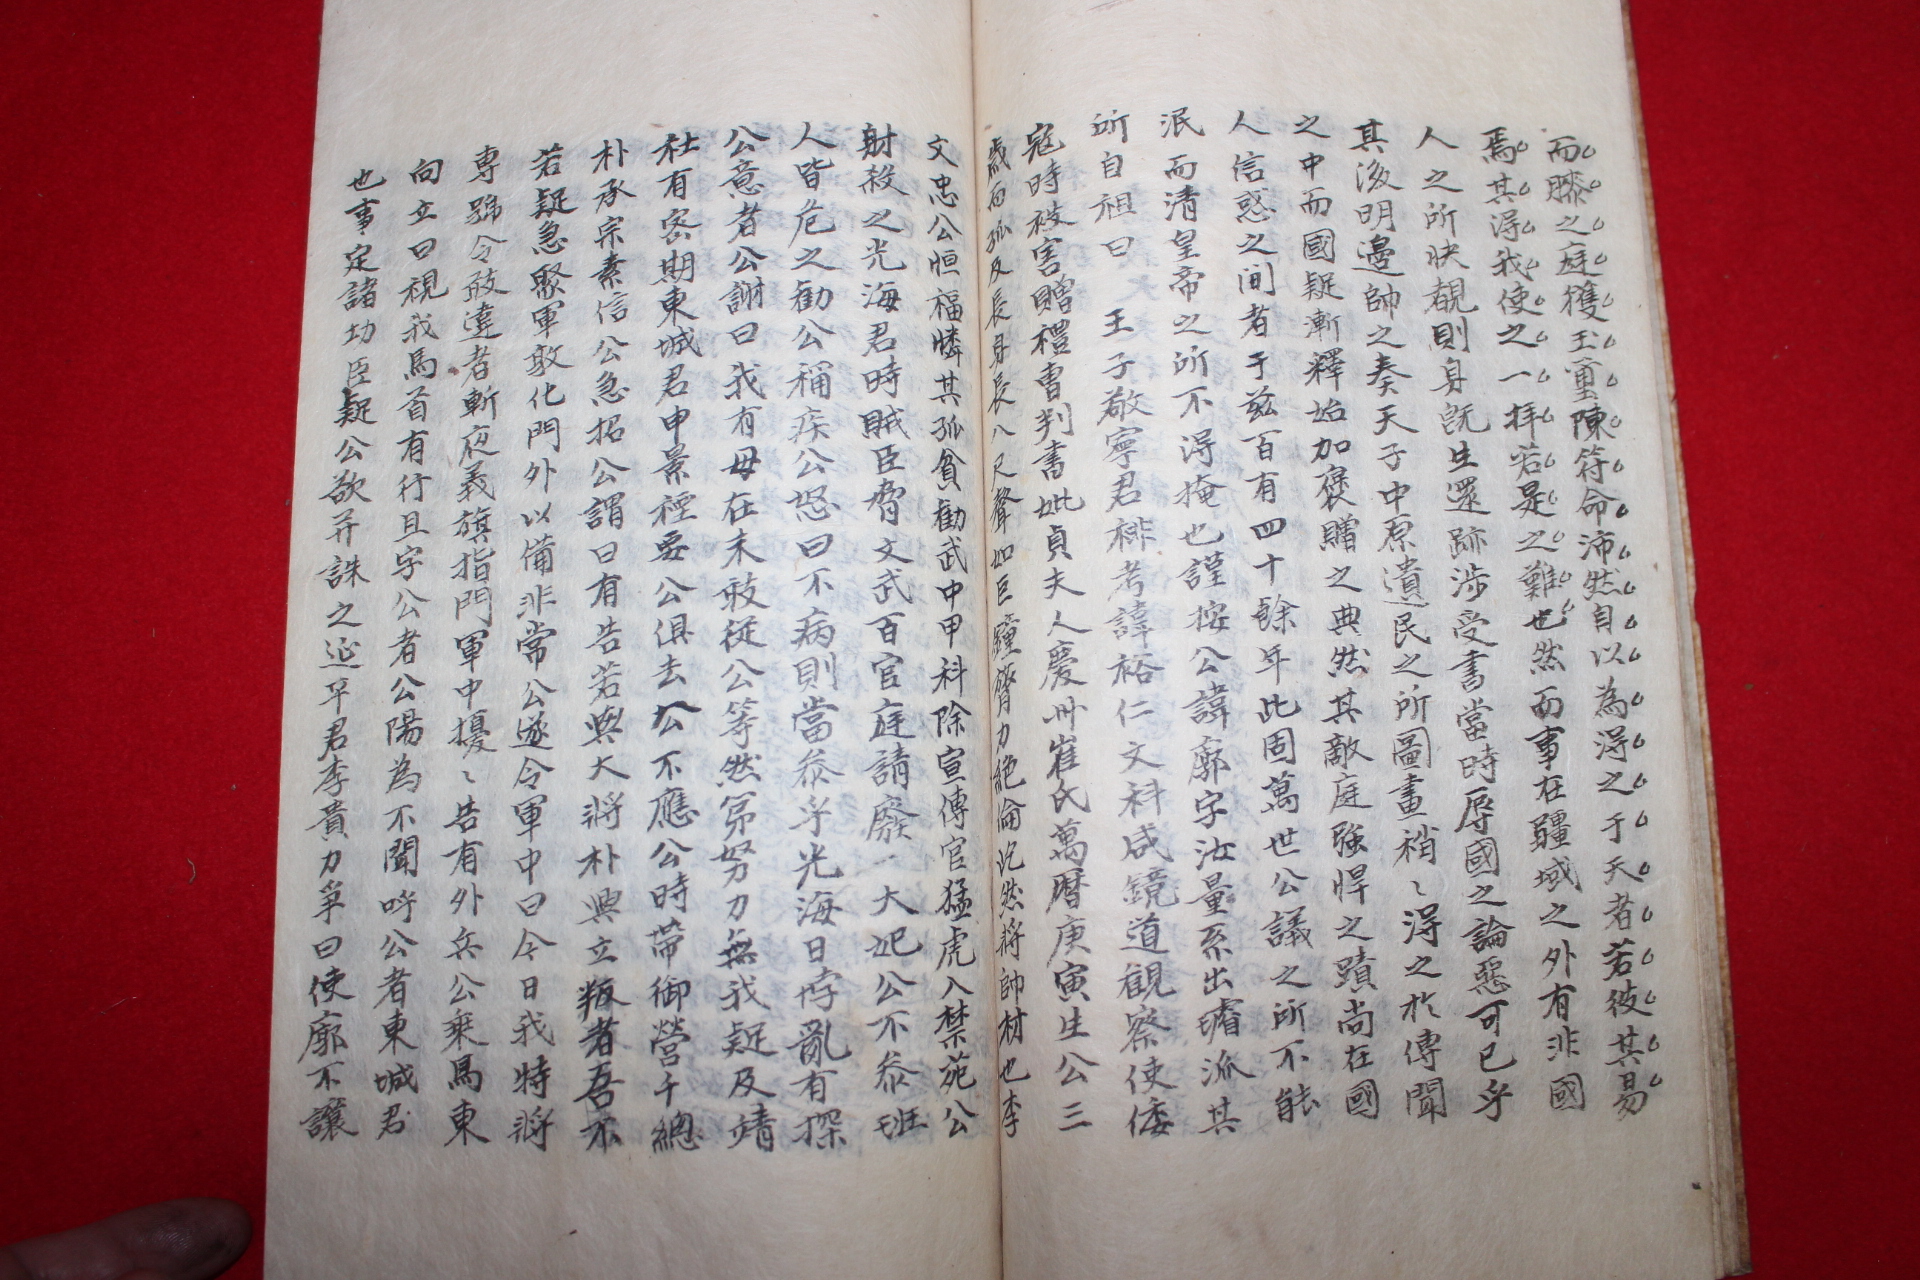 而膝之庭獲玉璽陳符命沛然自以為得之于天者若彼其易
焉其得我使之一拜若是之難也然而事在疆域之外有非國
人之所快覩則身旣生還跡涉受書當時辱國之論惡可已乎
其後明邊帥之奏天子中原遺民之所圖畫稍〻得之於傳聞
之中而國疑漸釋始加褒贈之典然其敵庭強悍之蹟尚在國
人信惑之間者于玆百有四十餘年此固萬世公議之所不能
泯而淸皇帝之所不得掩也謹按公諱廓字汝量系出璿派其
所自祖曰 王子敬寧君𥙷考諱裕仁文科咸鏡道觀察使倭
寇時被害贈禮曹判書妣貞夫人慶州崔氏萬曆庚寅生公三
歲而孤及長身長八尺聲如巨鐘膂力絕倫屹然將帥材也李
文忠公恒福憐其孤貧勸武中甲科除宣傳官猛虎入禁苑公
射殺之光海君時賊臣脅文武百官庭請廢 大妃公不叅班
人皆危之勸公稱疾公怒曰不病則當叅乎光海日悖亂有探
公意者公謝曰我有母在未敢從公等然第努力無我疑及靖
社有密期東城君申景禋要公俱去公不應公時帶御營千總
朴承宗素信公急招公謂曰有告若與大將朴興立叛者吾不
若疑急聚軍敦化門外以備非常公遂令軍中曰今日我特將
專號令敢違者斬夜義旗指門軍中擾〻告有外兵公乘馬東
向立曰視我馬首有行且字公者公陽為不聞呼公者東城君
也事定諸功臣疑公欲幷誅之延平君李貴力爭曰使廓不讓